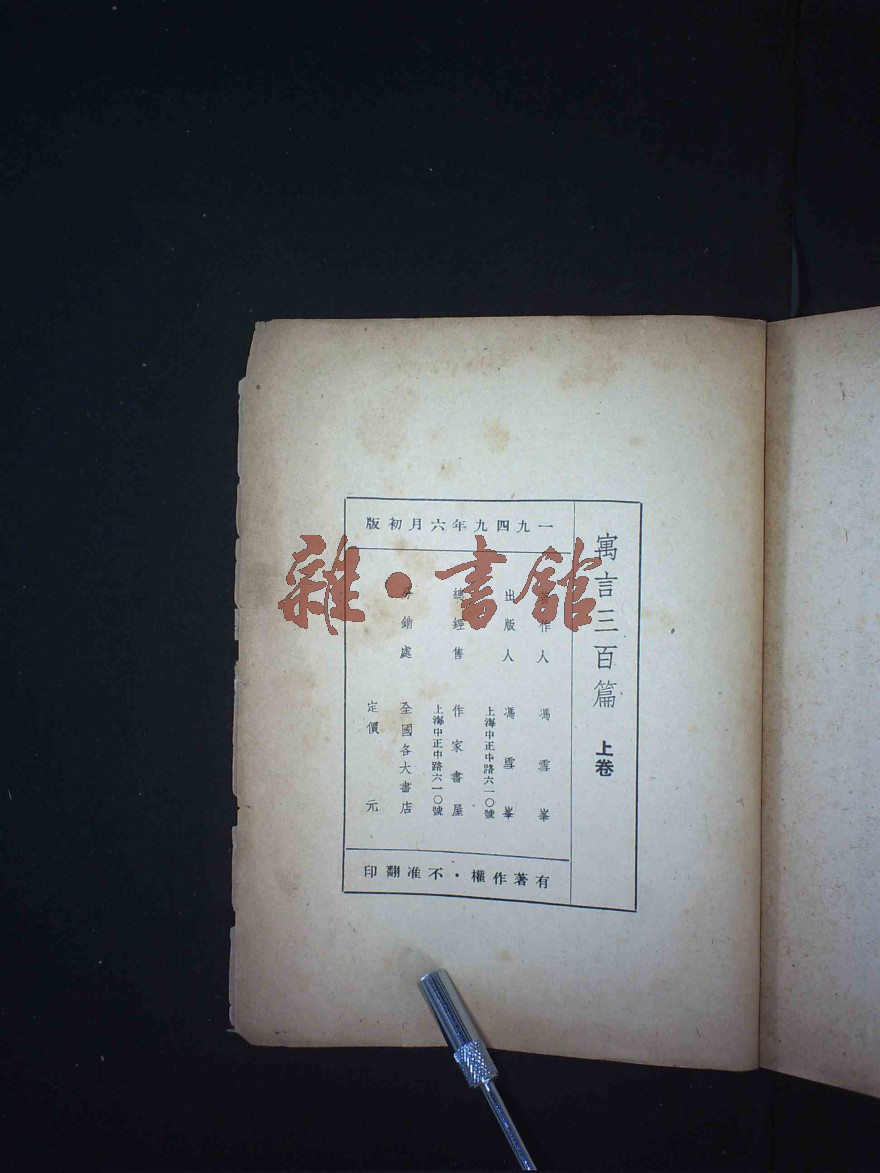 寓言三百篇 上卷
一九四九年六月初版
著作人 馮雪峯
出版人 馮雪峯
上海中正中路六一〇號
總經售 作家書屋
上海中正中路六一〇號
分銷處 全國各大書店
定價 元
有著作權·不准翻印
雜·書館